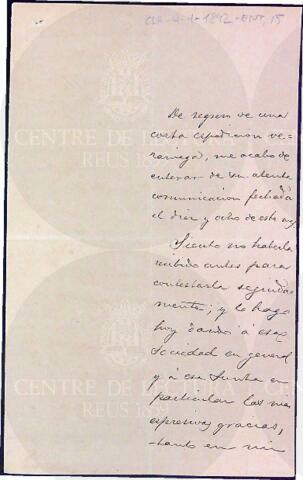 CLR-4-1-1892-ENT, 15
CENTRE DE LECTURA
REUS 1859
De regreso de una
corta espedicion ve-
raniega, me acabo de
enterar de su atenta
comunicacion fechada
el diez y ocho de este
Siento no haberla
recibido antes para
contestarla seguida-
mente; y lo hago
hoy dando á esa
Sociedad en general
y á su Junta en
particular las mas
espresivas gracias,
tanto en mi
CENTRE DE LECTURA
REUS 1859